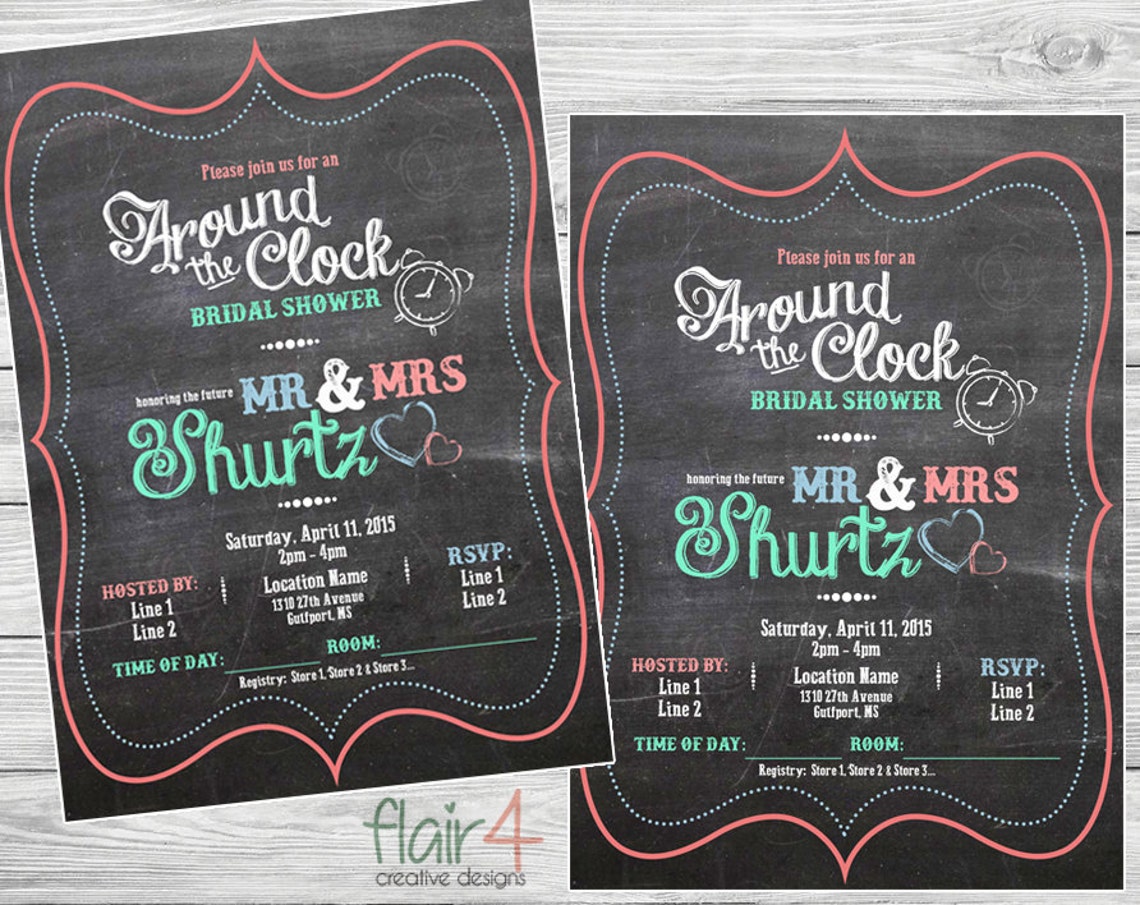 Please join us for an
Around
the Clock
BRIDAL SHOWER
honoring the future MR & MRS
Shurtz
Saturday, April 11, 2015
2pm - 4pm
HOSTED BY:
Line 1
Line 2
Location Name
1310 27th Avenue
Gutfport, MS
RSVP:
Line 1
Line 2
TIME OF DAY: ROOM:
Registry: Store 1, Store 2 & Store 3...
Please join us for an
Around
the Clock
BRIDAL SHOWER
honoring the future MR & MRS
Shurtz
Saturday, April 11, 2015
2pm - 4pm
HOSTED BY:
Line 1
Line 2
Location Name
1310 27th Avenue
Gutfport, MS
RSVP:
Line 1
Line 2
TIME OF DAY: ROOM:
Registry: Store 1, Store 2 & Store 3...
flair4
creative designs